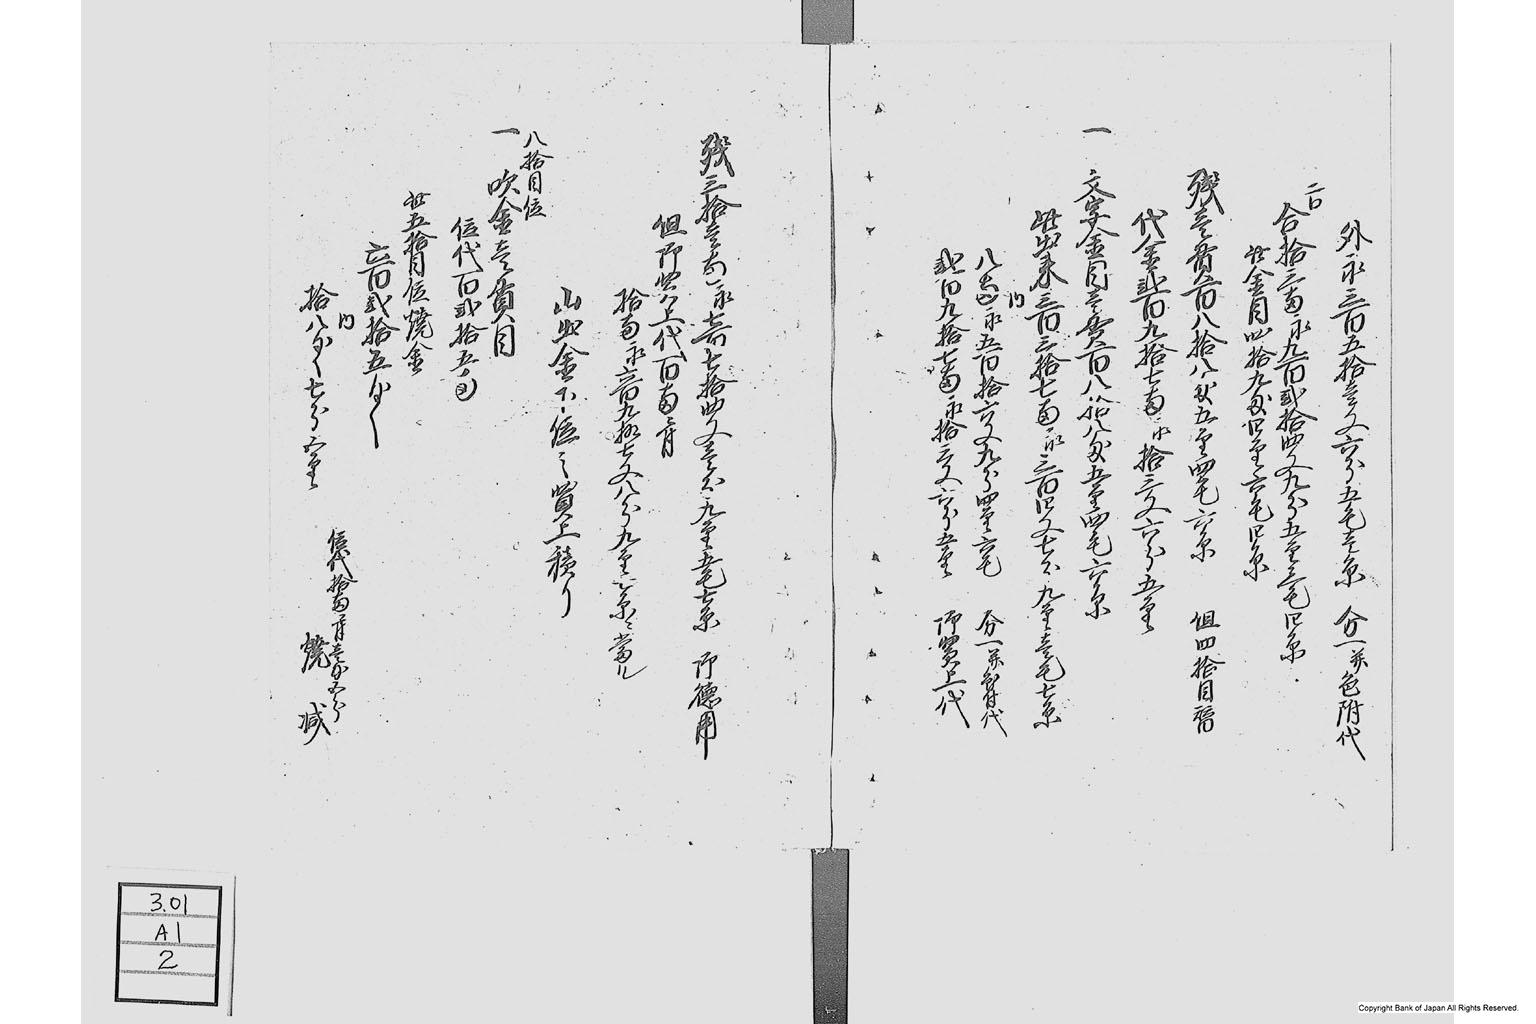 外永三百五拾壱文六分五毛壱糸 分一并色附代
二口
合拾三両永九百弐拾四文九分五厘三毛四糸
此金目四拾九匁四厘六毛四糸
残壱貫百八拾八匁五厘四毛六糸 但四拾目
代金弐百九拾七両永拾三文六分五厘
一 文字金目壱貫百八拾八匁五厘四毛六糸
此出来三百三拾七両永三百四文七分九厘壱毛七糸
内
八両永五百拾六文九分四厘六毛 分一并色付代
弐百九拾七両永拾三文六分五厘 御買上代
残三拾壱両永七百七拾四文壱分九厘五毛七糸 御徳用
但御買上代百両ニ付
拾両永六百九拾七文八分九厘六糸ニ当ル
山出金下位之買上積り
八拾目位
一 吹金壱貫目
位代百弐拾五両
此五拾目位焼金
六百弐拾五匁
内
拾八匁七分五厘 焼減
位代拾両ニ付壱分五り
3.01
A1
2
Copyright Bank of Japan All Rights Reserved.